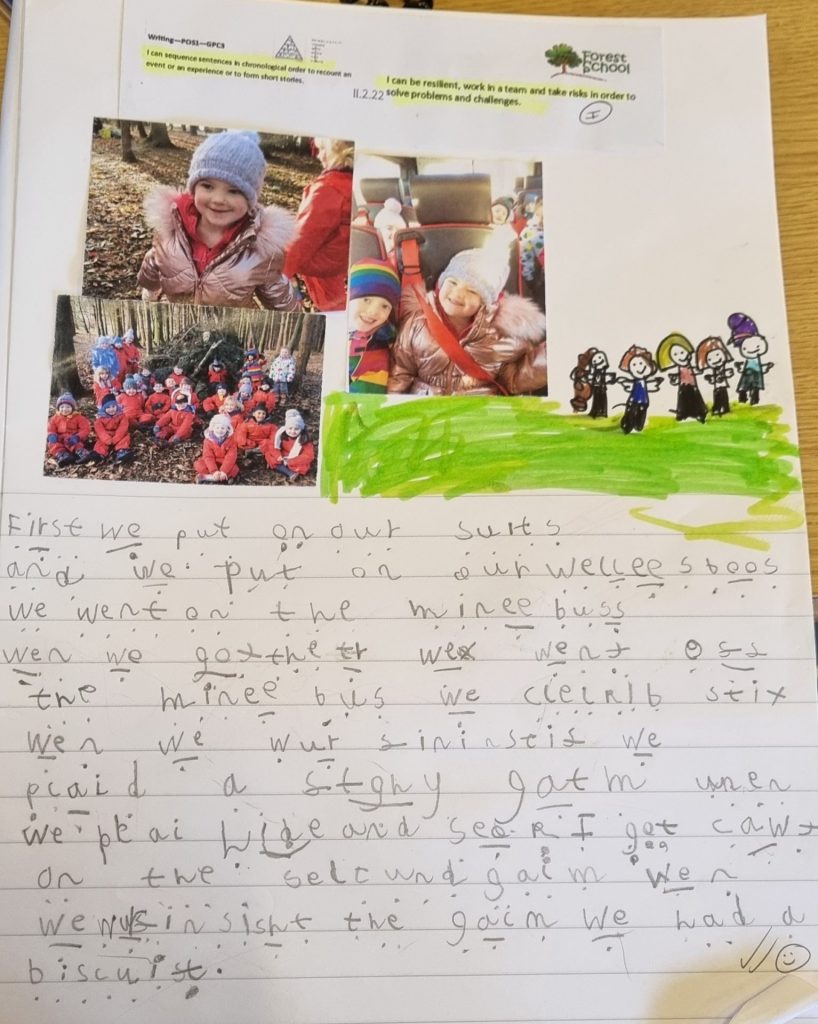 Writing—POS1—GPC3
I can sequence sentences in chronological order to recount an
event or an experience or to form short stories.
Forest
School
I can be resilient, work in a team and take risks in order to
11.2.22 solve problems and challenges.
I
First we put on our suits
and we put on our wellees boos
we went on the minee buss
wen we got the tr we went off
the minee bus we stix
wen we wur we
plaid a gaim wen
we plai hide and seek I got cawt
on the secund gaim wen
we wus insisht the gaim we had a
biscuist.